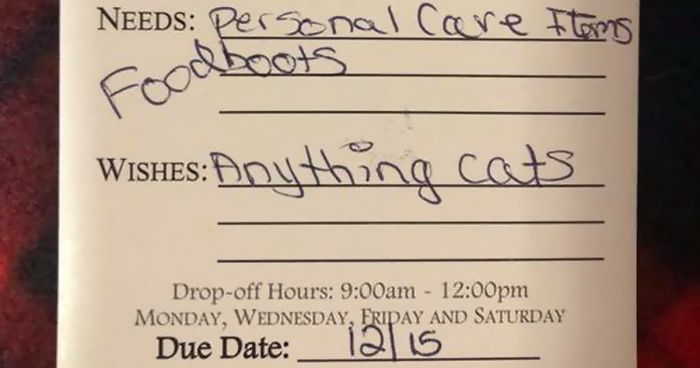 NEEDS: Personal Care Items
Food boots
WISHES: Anything cats
Drop-off Hours: 9:00am - 12:00pm
MONDAY, WEDNESDAY, FRIDAY AND SATURDAY
Due Date: 12/15